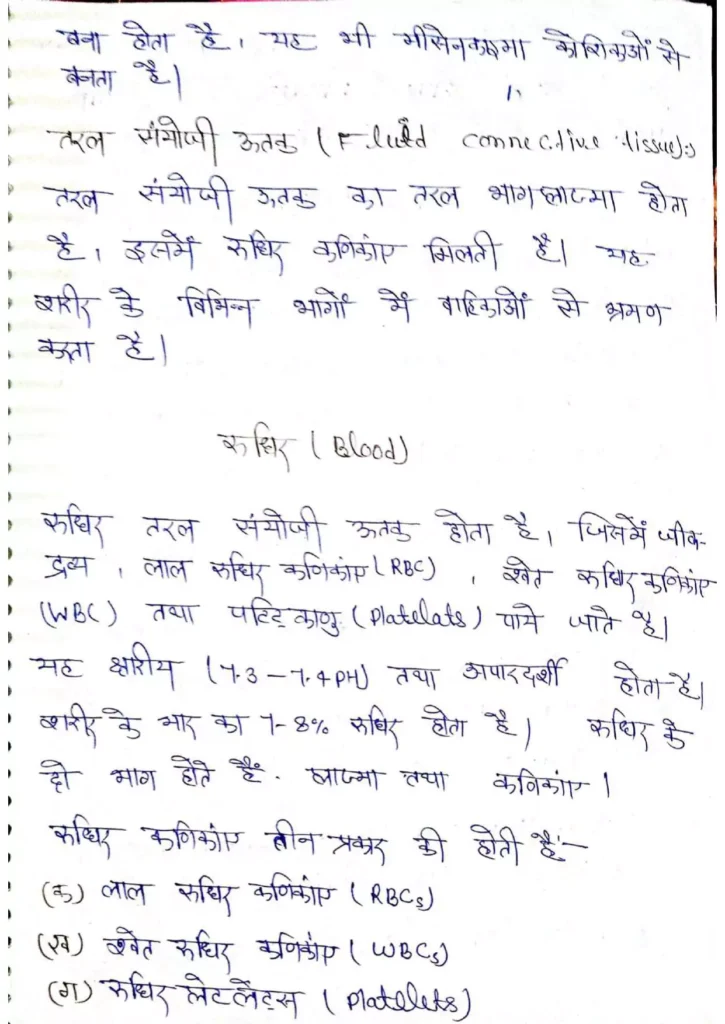 बना होता है, यह भी मीसेनकाइमा कोशिकाओं से
बनता है।
तरल संयोजी ऊतक (Fluid connective tissue):-
तरल संयोजी ऊतक का तरल भाग प्लाज्मा होता
है, इसमें रुधिर कणिकांए मिलती है। यह
शरीर के विभिन्न भागों में वाहिकाओं से भ्रमण
करता है।
रुधिर (Blood)
रुधिर तरल संयोजी ऊतक होता है, जिसमें जीव-
द्रव्य, लाल रुधिर कणिकांए (RBC), श्वेत रुधिर कणिकांए
(WBC) तथा पट्टिकाणु (Platelats) पाये जाते है।
यह क्षारीय (7.3 – 7.4 PH) तथा अपारदर्शी होता है।
शरीर के भार का 7-8% रुधिर होता है। रुधिर के
दो भाग होते हैं. प्लाज्मा तथा कणिकांए।
रुधिर कणिकांए तीन प्रकार की होती हैं:-
(क) लाल रुधिर कणिकांए (RBCs)
(ख) श्वेत रुधिर कणिकांए (WBCs)
(ग) रुधिर प्लेटलेट्स (Platelets)